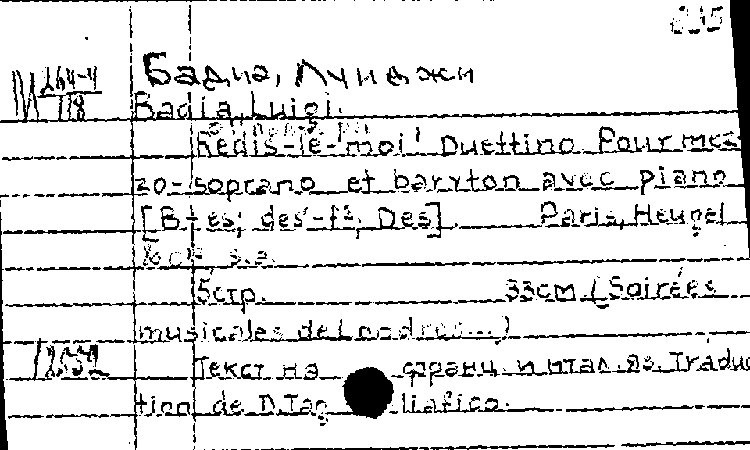 Бадиа, Луиджи
М 264-4
118
Badia, Luigi.
Redis-le-moi! Duettino pour mez-
zo-soprano et baryton avec piano
[B-es; des¹-f²; Des]. Paris, Heugel
s.a.
5стр. 33см (Soirées
musicales de Londres...)
12532
Текст на франц. и итал. яз. Traduc
tion de D. Tagliafico.